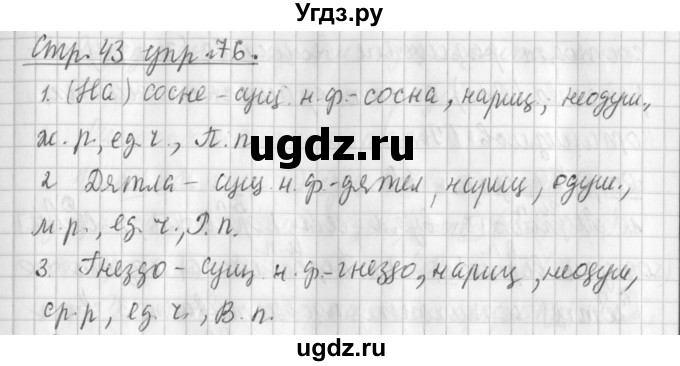 Угдз.ру
Стр. 43 упр 76.
1. (На) сосне – сущ. н.ф.-сосна, нариц., неодуш.,
ж.р., ед.ч., П.п.
ugdz.ru
2 Дятла – сущ. н.ф.-дятел, нариц, одуш.,
м.р., ед.ч., Р.п.
3. Гнездо – сущ. н.ф.-гнездо, нариц, неодуш,
ср.р, ед.ч., В.п.
ugdz.ru